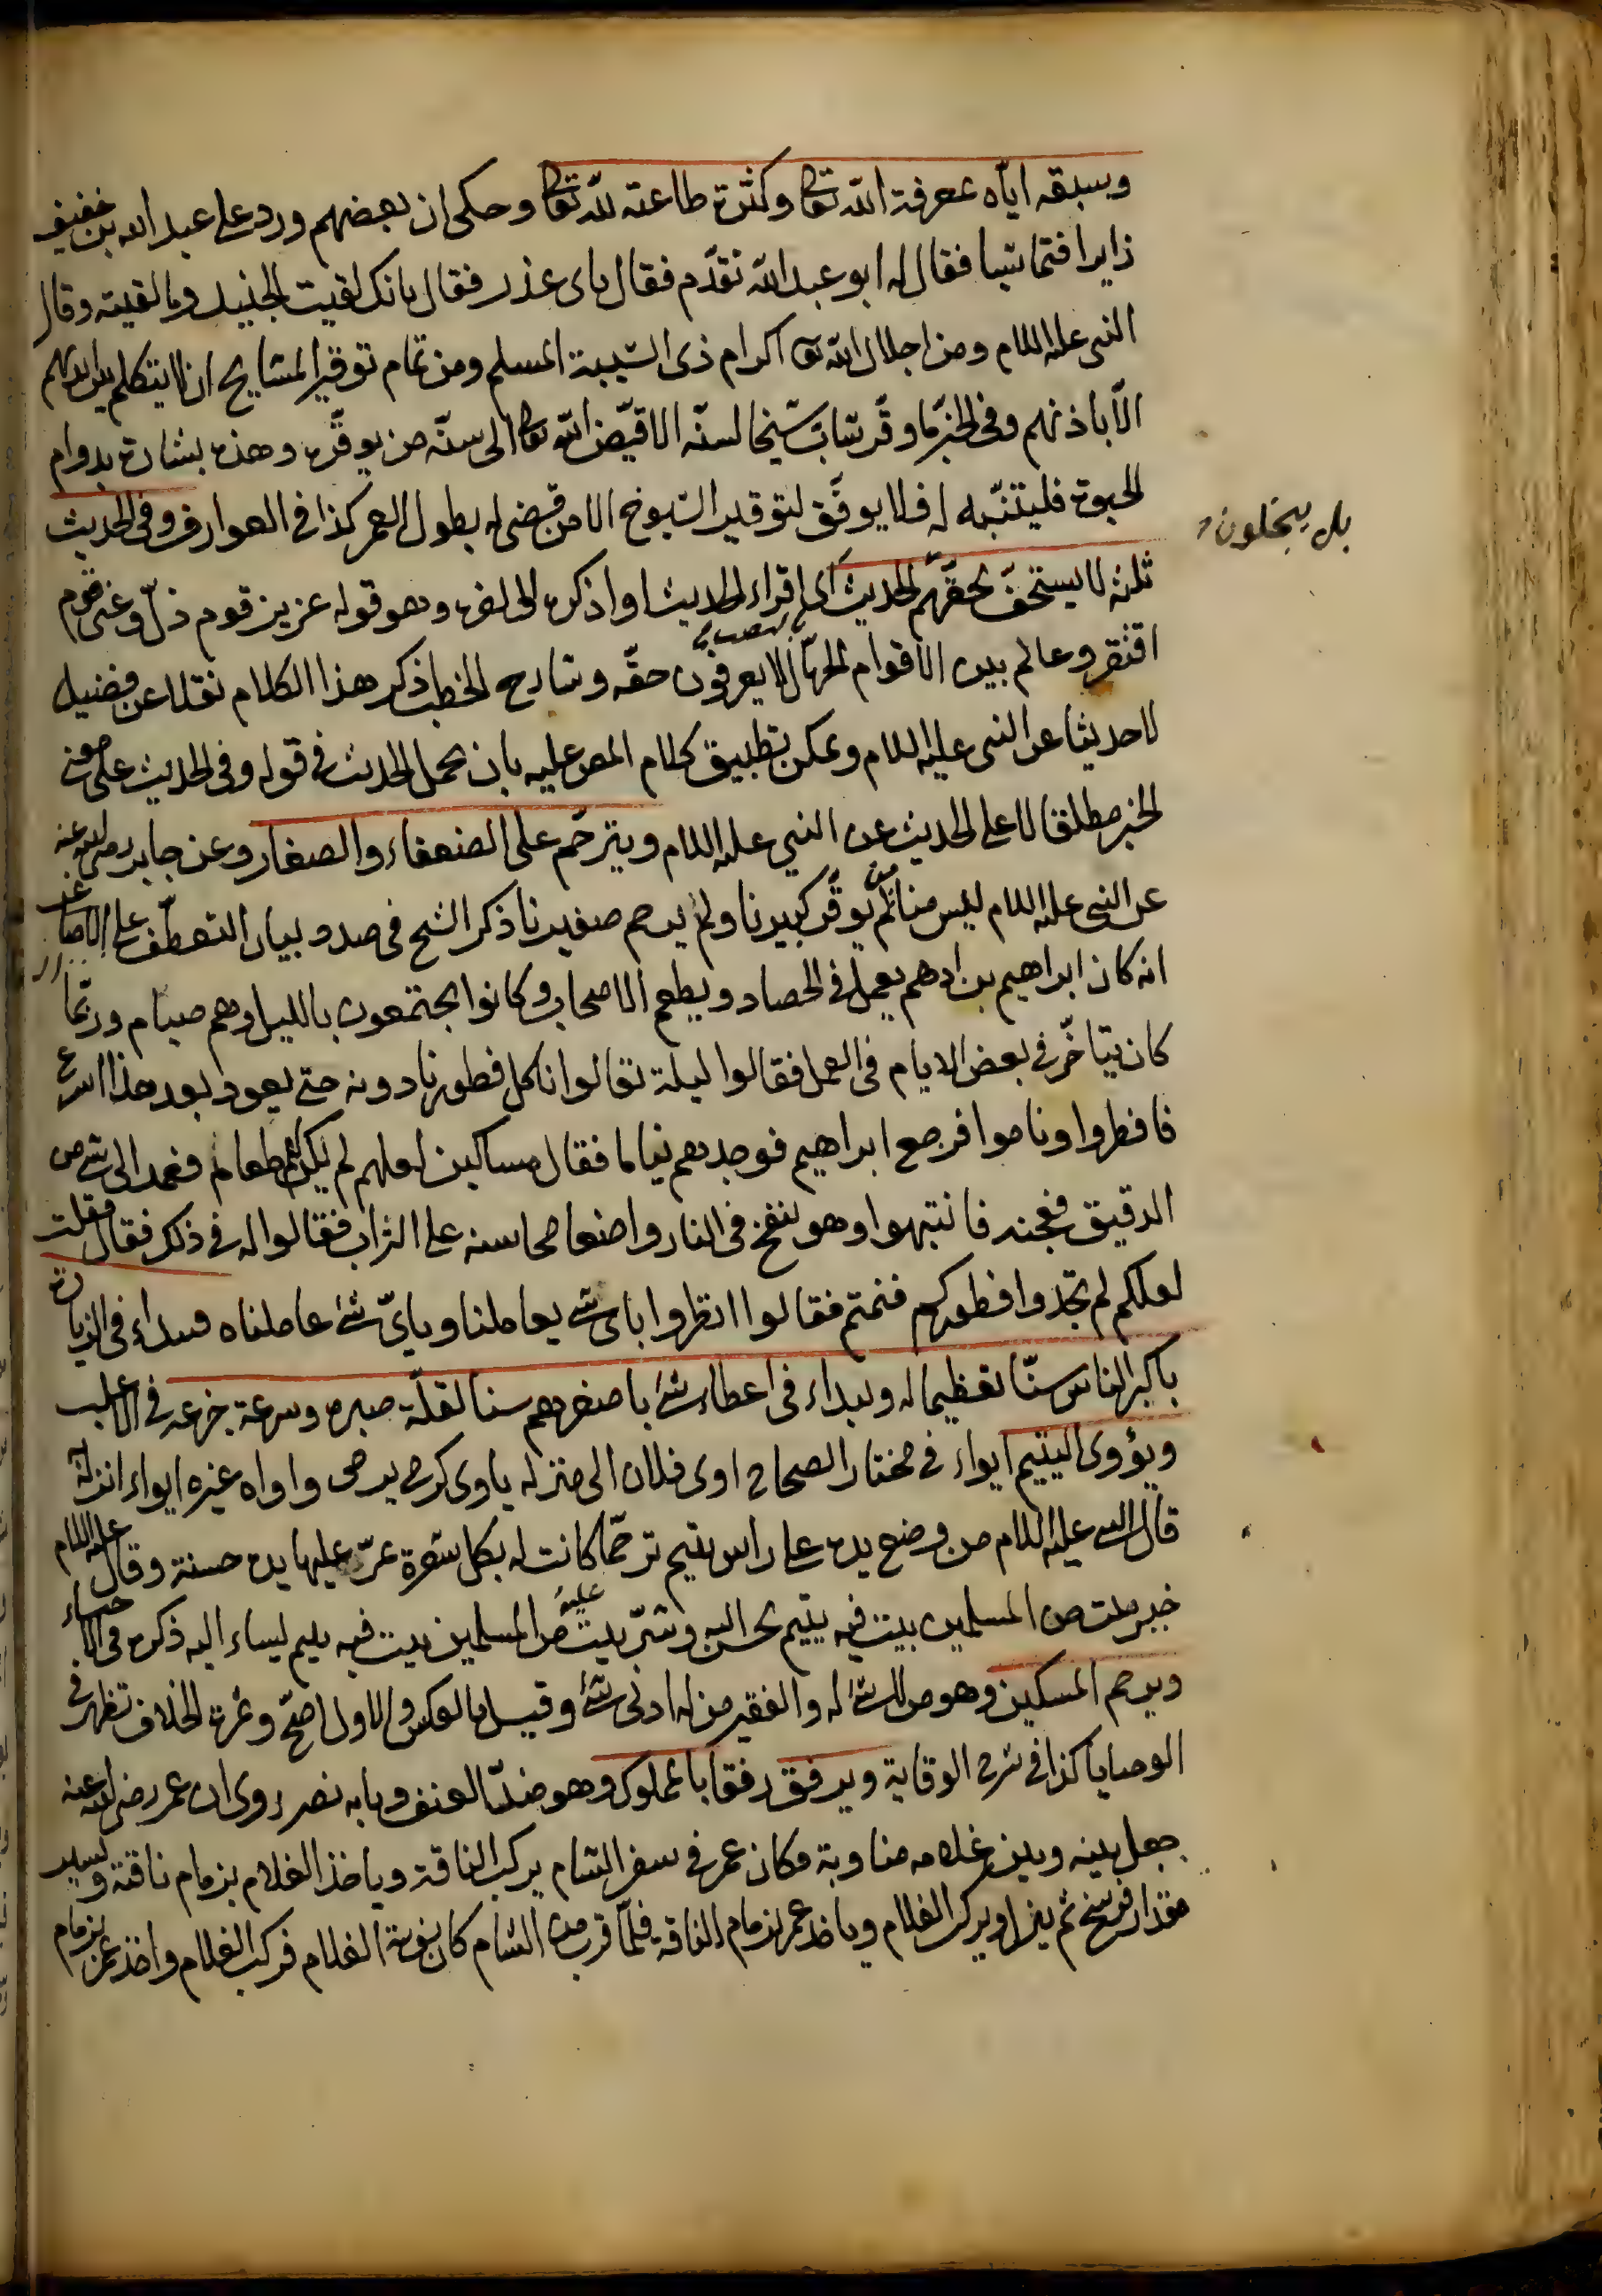 وسبقه اياه بمعرفة الله تعا وكثرة طاعته لله تعا وحكى ان بعضهم ورد على عبد الله بن خفيف
زايرا فتماشيا فقال له ابو عبد الله تقدّم فقال باى عذر فقال بانك لقيت الجنيد وما لقيته وقال
النبى عليه اللام ومن اجلال الله تعا اكرام ذى الشيبة المسلم ومن تمام توقير المشايخ ان لا يتكلم بين ايديهم
الّا باذنهم وفى الخبر ما وقّر شابّ شيخا لسنّه الا قيّض الله تعا الى سنّه من يوقّره وهذه بشارة بدوام
الحيوة فليتنبّه له فلا يوفّق لتوقير الشيوخ الا من قضى له بطول العمر كذا فى العوارف وفى الحديث
بل يبجلون
ثلثة لا يستخفّ بحقّهم الحديث اى اقراء الحديث او اذكره الى اخره وهو قوله عزيز قوم ذلّ وغنى قوم
افتقر وعالم بين الاقوام الجهّال لا يعرفون حقّه وشارح الخطب ذكر هذا الكلام نقلا عن فضيل
لا حديثا عن النبى عليه اللام ويمكن تطبيق كلام المص عليه بان يحمل الحديث فى قوله وفى الحديث على معنى
الخبر مطلقا لا على الحديث عن النبي عليه اللام ويترحّم على الضعفاء والصغار وعن جابر رضى الله عنه
عن النبى عليه اللام ليس منا من لم يوقّر كبيرنا ولم يرحم صغيرنا ذكر الشيخ فى صدد بيان التعطّف على الاصاغر
انه كان ابراهيم بن ادهم يعمل فى الحصاد ويطعم الاصحاب وكانوا يجتمعون بالليل وهم صيام وربّما
كان يتأخّر فى بعض الايام فى العمل فقالوا ليلة تعالوا ناكل فطورنا دونه حتى يعود بعد هذا اسرع
فافطروا وناموا فرجع ابراهيم فوجدهم نياما فقال مساكين لعلهم لم يكن لهم طعام فعمد الى شئ من
الدقيق فعجنه فانتبهوا وهو ينفخ فى النار واضعا محاسنه على التراب فقالوا له فى ذلك فقال فقلت
لعلكم لم تجدوا فطوركم فنمتم فقالوا انظروا باى شئ يعاملنا وباىّ شئ عاملناه ويبداء فى الزيارة
باكبر الناس سنّا تعظيما له ويبداء فى اعطاء شئ باصغرهم سنا لقلّة صبره وسرعة جزعه فى الاغلب
ويؤوى اليتيم ايواء فى مختار الصحاح اوى فلان الى منزله ياوى كرمى يرمى واواه غيره ايواء انزله
قال النبى عليه اللام من وضع يده على راس يتيم ترحّما كانت له بكل شعرة تمرّ عليها يده حسنة وقال عليه اللام
خير بيت من المسلمين بيت فيه يتيم يحسن اليه وشرّ بيت من المسلمين بيت فيه يتيم يساء اليه ذكره فى الاحياء
ويرحم المسكين وهو من لا شئ له والفقير من له ادنى شئ وقيل بالعكس والاول اصحّ وثمرة الخلاف تظهر فى
الوصايا كذا فى شرح الوقاية ويرفق رفقا بالمملوك وهو ضدّ العنف وبابه نصر روى ان عمر رضى الله عنه
جعل بينه وبين غلامه مناوبة فكان عمر فى سفر الشام يركب الناقة وياخذ الغلام بزمام ناقته ويسير
مقدار فرسخ ثم ينزل ويركب الغلام وياخذ عمر بزمام الناقة فلمّا قرب من الشام كان نوبة الغلام فركب الغلام واخذ عمر بزمام